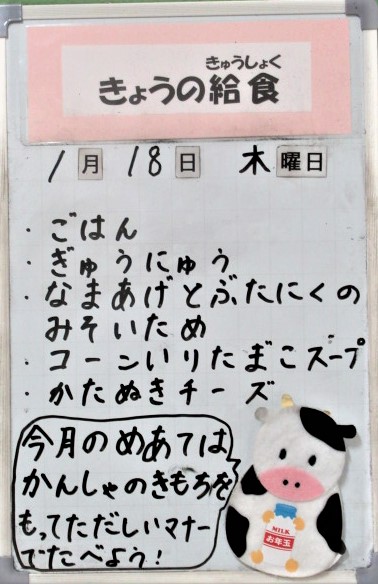 きゅうしょく
きょうの給食
1月18日 木曜日
・ごはん
・ぎゅうにゅう
・なまあげとぶたにくの
みそいため
・コーンいりたまごスープ
・かたぬきチーズ
今月のめあては
かんしゃのきもちを
もってただしいマナー
でたべよう!
MILK
お年玉